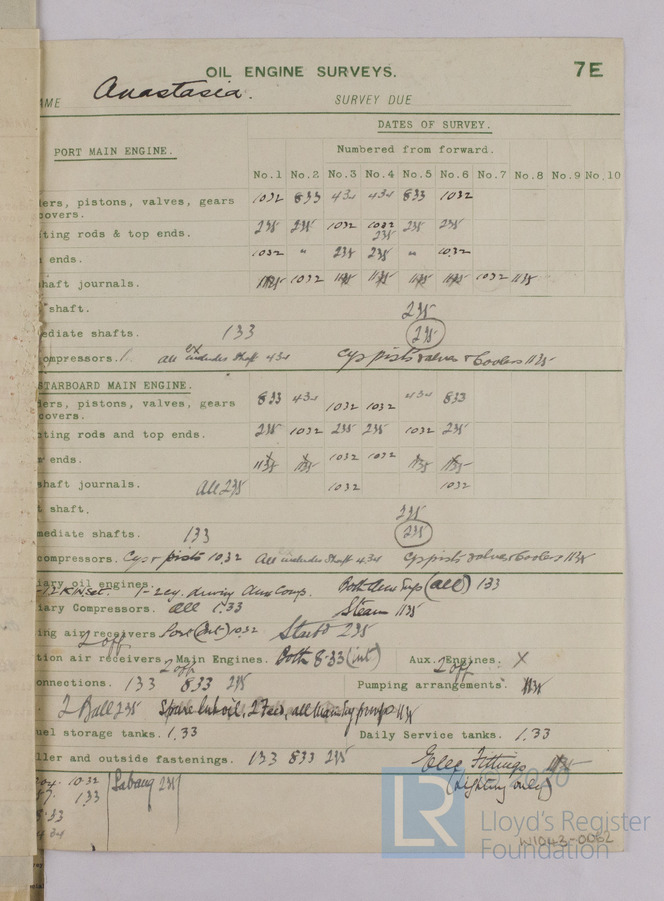 OIL ENGINE SURVEYS. 7E
AME Anastasia. SURVEY DUE
DATES OF SURVEY.
PORT MAIN ENGINE. Numbered from forward.
No.1 No.2 No.3 No.4 No.5 No.6 No.7 No.8 No.9 No.10
ders, pistons, valves, gears 1032 833 434 434 833 1032
covers.
ting rods & top ends. 235 235 1032 1032 235 235
235
ends. 1032 " 235 235 " 1032
haft journals. 1135 1032 1135 1135 1135 1135 1032 1135
shaft. 235
ediate shafts. 133 235
ompressors. All includes shaft 434 Cyps pists valves & Coolers 1135
STARBOARD MAIN ENGINE.
ders, pistons, valves, gears 833 434 1032 1032 434 833
covers.
ting rods and top ends. 235 1032 235 235 1032 235
ends. 1135 1135 1032 1032 1135 1135
shaft journals. All 235 1032 1032
t shaft. 235
mediate shafts. 133 235
compressors. Cyps & pists 10.32 All includes shaft 4.34 Cyps pists valves & Coolers 1135
iary oil engines.
1-2cy. driving Aux Comp. (all) 133
iary Compressors. all 1.33 Steam 1135
ing air receivers. Port (Int) 10.32 Starbd 235
2 off
tion air receivers, Main Engines. Both 8.33 (int) Aux. Engines. X
2 off 2 off
onnections. 133 833 235 Pumping arrangements. 1135
2 Ball 235 Spare lub oil, 2 Feed, all main pumps 1135
uel storage tanks. 1.33 Daily Service tanks. 1.33
ller and outside fastenings. 133 833 235 Elec Fittings 1135
(Lighting only)
10.32 Sabang 235
133
8.33
4.34
© 2020
LR
Lloyd's Register
Foundation
W1043-0062